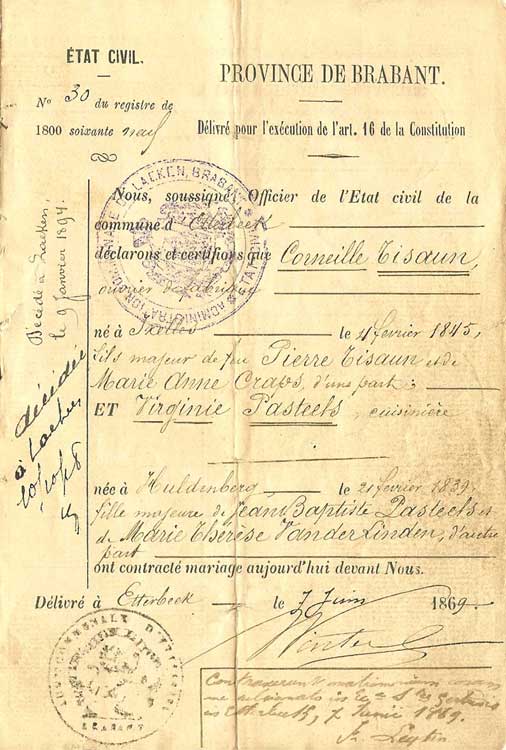 ÉTAT CIVIL.
N° 30 du registre de
1800 soixante neuf
PROVINCE DE BRABANT.
Délivré pour l'exécution de l'art. 16 de la Constitution
Nous, soussigné, Officier de l'Etat civil de la
commune d'Etterbeek
déclarons et certifions que Corneille Tisaun,
ouvrier de fabrique
né à Ixelles le 4 février 1845,
fils majeur de feu Pierre Tisaun et de
Marie Anne Craps, d'une part;
ET Virginie Pasteels, cuisinière
née à Huldenberg, le 21 février 1839,
fille majeure de Jean Baptiste Pasteels et
de Marie Thérèse Vander Linden, d'autre
part
ont contracté mariage aujourd'hui devant Nous.
Délivré à Etterbeek le 7 Juin 1869.
Décédé à Laeken,
le 9 Janvier 1894.
décédée
à Laeken
LAEKEN, BRABANT
ADMINISTRATION
BRABANT
Contraxerunt matrimonium coram
me
in Etterbeek, 7 Junii 1869.